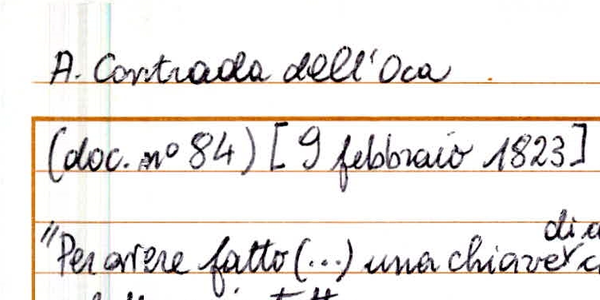 A. Contrada dell'Oca
(doc. nº 84) [9 febbraio 1823]
di
"Per avere fatto (...) una chiave